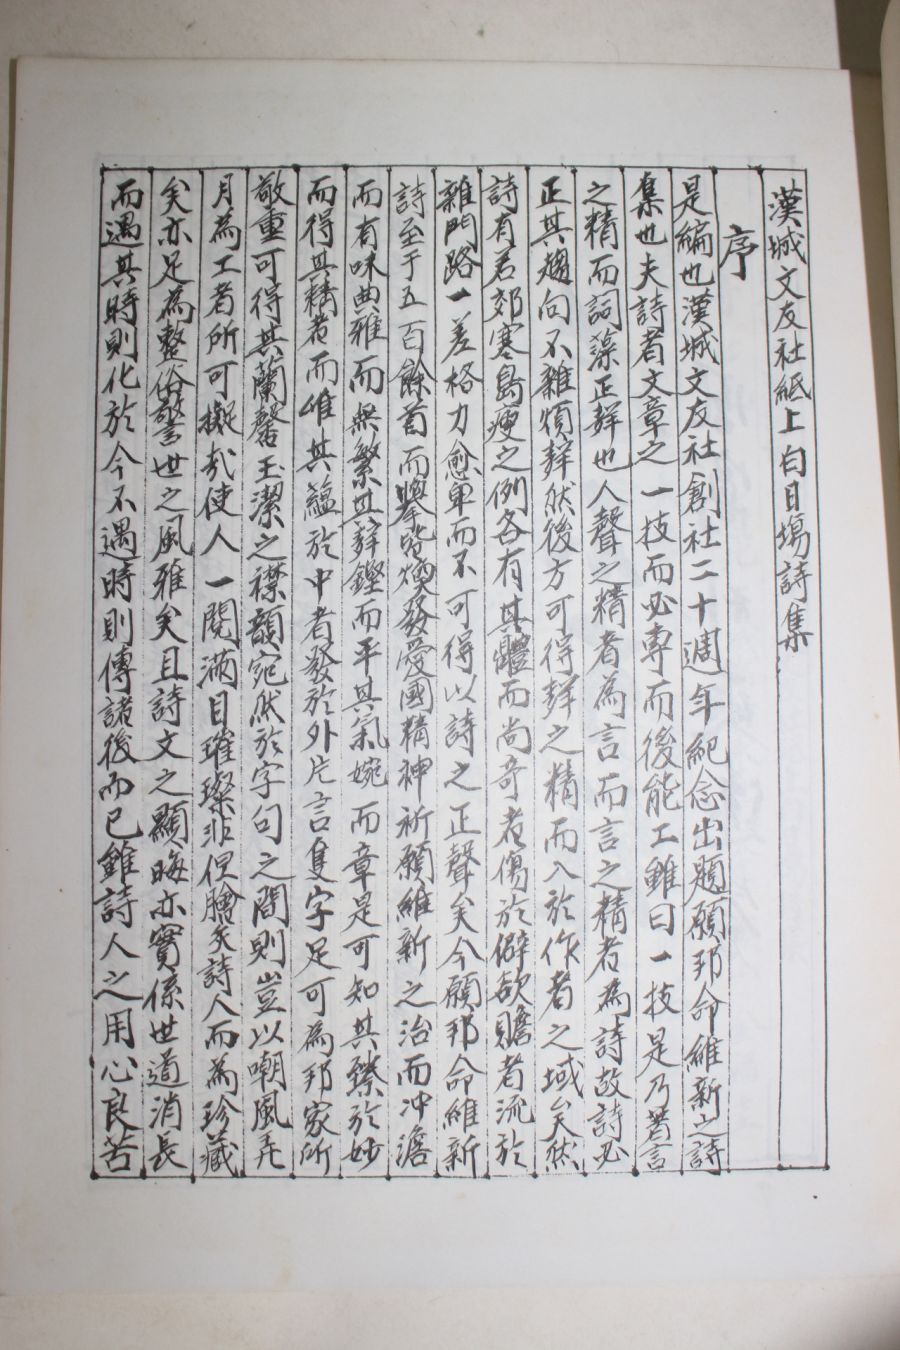 漢城文友社紙上白日場詩集
序
是編也漢城文友社創社二十週年紀念出題願邦命維新之詩
集也夫詩者文章之一技而必專而後能工雖曰一技是乃蓍言
之精而詞藻正辭也人聲之精者為言而言之精者為詩故詩必
正其趨向不雜煩辭然後方可得辭之精而入於作者之域矣然
詩有若郊寒島瘦之例各有其體而尚奇者傷於僻欲贍者流於
雜門路一差格力愈卑而不可得以詩之正聲矣今願邦命維新
詩至于五百餘首而擧皆煥發愛國精神祈願維新之治而冲澹
而有味典雅而無繁其辭鏗而平其氣婉而章是可知其臻於妙
而得其精者而唯其蘊於中者發於外片言隻字足可為邦家所
敬重可得其蘭馨玉潔之襟韻宛然於字句之間則豈以嘲風弄
月為工者所可擬哉使人一閱滿目璀璨非但膾炙詩人而為珍藏
矣亦足為整俗警世之風雅矣且詩文之顯晦亦實係世道消長
而遇其時則化於今不遇時則傳諸後而已雖詩人之用心良苦